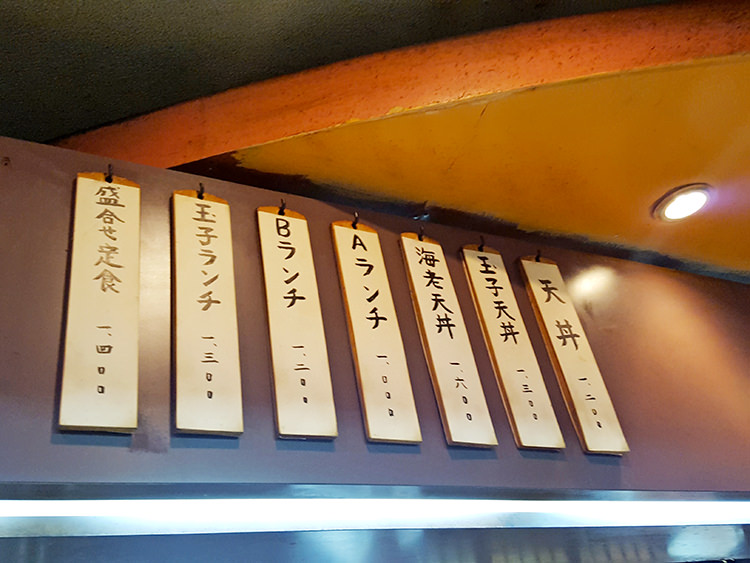 天丼 一、二〇〇
玉子天丼 一、三〇〇
海老天丼 一、六〇〇
Aランチ 一、〇〇〇
Bランチ 一、二〇〇
玉子ランチ 一、三〇〇
盛合せ定食 一、四〇〇